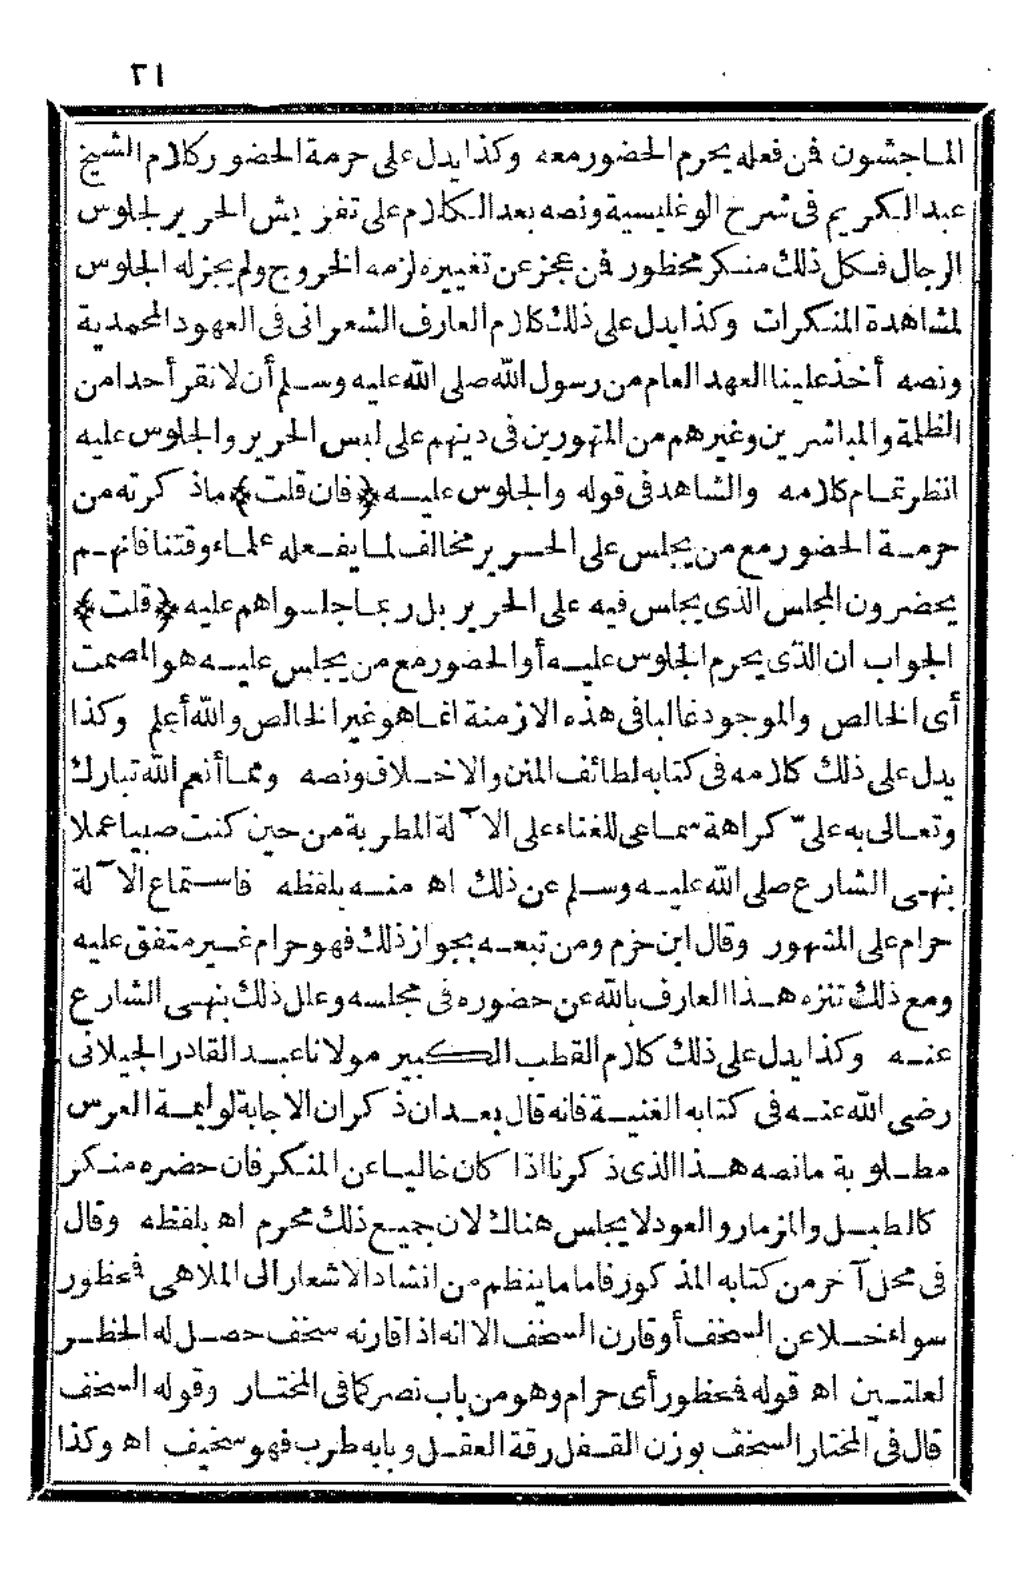 ٢١
الماجشون فمن فعله يحرم الحضور معه وكذا يدل على حرمة الحضور كلام الشيخ
عبد الكريم في شرح الوغليسية ونصه بعد الكلام على تفريش الحرير لجلوس
الرجال فكل ذلك منكر محظور فمن عجز عن تغييره لزمه الخروج ولم يجز له الجلوس
لمشاهدة المنكرات وكذا يدل على ذلك كلام العارف الشعراني في العهود المحمدية
ونصه أخذ علينا العهد العام من رسول الله صلى الله عليه وسلم أن لا نقر أحدا من
الظلمة والمباشرين وغيرهم من المتهورين في دينهم على لبس الحرير والجلوس عليه
انظر تمام كلامه والشاهد في قوله والجلوس عليه ﴿فان قلت﴾ ما ذكرته من
حرمة الحضور مع من يجلس على الحرير مخالف لما يفعله علماء وقتنا فانهم
يحضرون المجلس الذى يجلس فيه على الحرير بل ربما جلسوا هم عليه ﴿قلت﴾
الجواب ان الذى يحرم الجلوس عليه أو الحضور مع من يجلس عليه هو المصمت
أى الخالص والموجود غالبا في هذه الازمنة انما هو غير الخالص والله أعلم وكذا
يدل على ذلك كلامه في كتابه لطائف المنن والاخلاق ونصه ومما أنعم الله تبارك
وتعالى به علىّ كراهة سماعى للغناء على الآلة المطربة من حين كنت صبيا عملا
بنهى الشارع صلى الله عليه وسلم عن ذلك اه منه بلفظه فاستماع الآلة
حرام على المشهور وقال ابن حزم ومن تبعه بجواز ذلك فهو حرام غير متفق عليه
ومع ذلك تنزه هذا العارف بالله عن حضوره في مجلسه وعلل ذلك بنهى الشارع
عنه وكذا يدل على ذلك كلام القطب الكبير مولانا عبد القادر الجيلانى
رضى الله عنه في كتابه الغنية فانه قال بعد ان ذكر ان الاجابة لوليمة العرس
مطلوبة ما نصه هذا الذى ذكرنا اذا كان خاليا عن المنكر فان حضره منكر
كالطبل والمزمار والعود لا يجلس هناك لان جميع ذلك محرم اه بلفظه وقال
في محل آخر من كتابه المذكور فاما ما ينظم من انشاد الاشعار الى الملاهى فمحظور
سواء خلا عن السخف أو قارن السخف الا انه اذا قارنه سخف حصل له الحظر
لعلتين اه قوله فمحظور أى حرام وهو من باب نصر كما في المختار وقوله السخف
قال في المختار السخف بوزن القفل رقة العقل وبابه طرب فهو سخيف اه وكذا